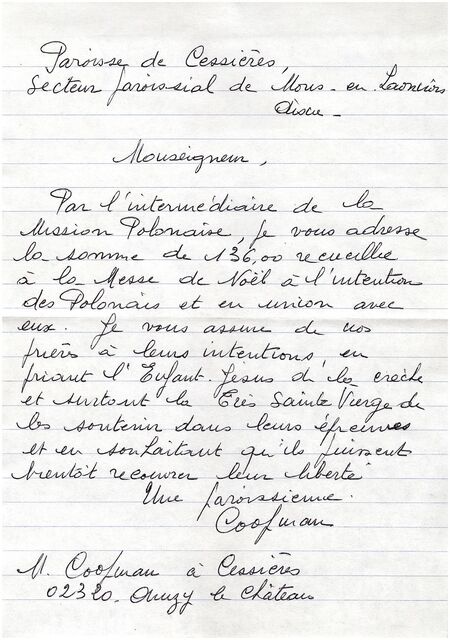 Paroisse de Cessières,
Secteur paroissial de Mons-en-Laonnois
Aisne -
Monseigneur,
Par l'intermédiaire de la
Mission Polonaise, je vous adresse
la somme de 136,00 recueillie
à la Messe de Noël à l'intention
des Polonais et en union avec
eux. Je vous assure de nos
prières à leurs intentions, en
priant l'Enfant-Jésus de la crèche
et surtout la Très Sainte Vierge de
les soutenir dans leurs épreuves
et en souhaitant qu'ils puissent
bientôt recouvrer leur liberté
Une paroissienne.
Coopman
M. Coopman à Cessières
02320 - Anizy le Château